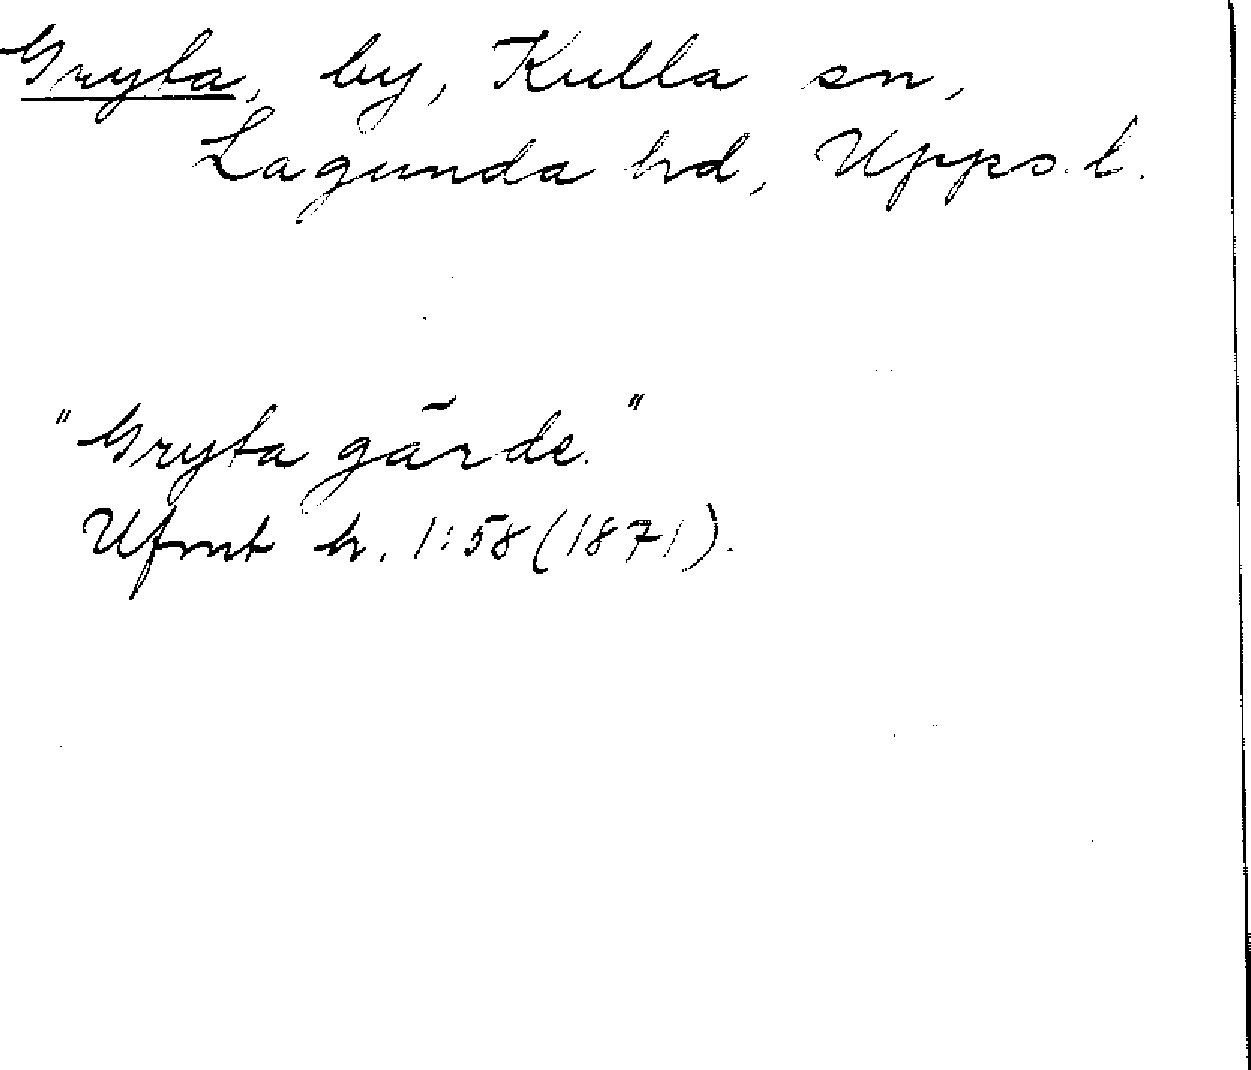 Gryta, by, Kulla sn,
Lagunda hd, Upps. l.
"Gryta gärde."
Ufmt h. 1:58 (1871).